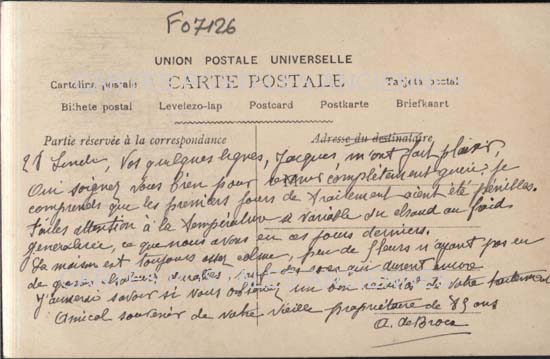 F07126
UNION POSTALE UNIVERSELLE
CARTE POSTALE
Cartolina postale
Tarjeta postal
Bilhete postal Levelezo-lap Postcard Postkarte Briefkaart
Partie réservée à la correspondance
Adresse du destinataire
21 Lundi, Vos quelques lignes, Jacques, m'ont fait plaisir,
Oui soignez vous bien pour complètement guérir. Je
comprends que les premiers jours de traitement aient été pénibles.
Faites attention à la température si variable du chaud au froid
generalisée, ce que nous avons eu ces jours derniers.
La maison est toujours assez calme, peu de fleurs n'ayant pas eu
de grosses chaleurs durables sauf des roses qui durent encore
J'aimerai savoir si vous obtenez un bon résultat de votre traitement
Amical souvenir de votre vieille propriétaire de 89 ans
A. de Broca